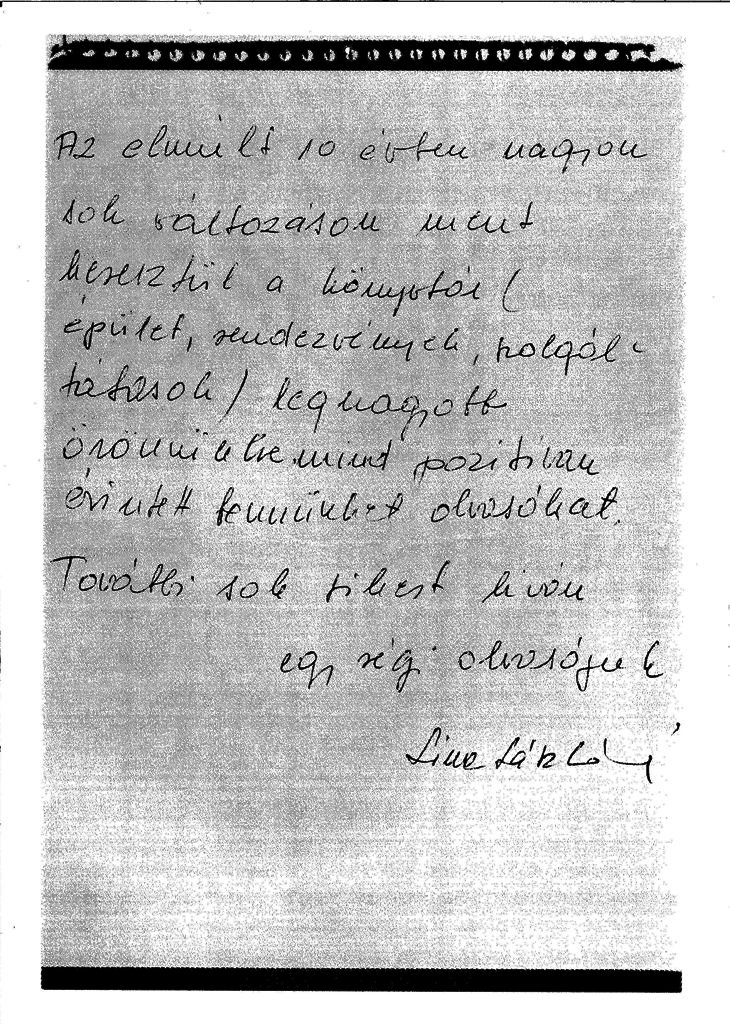 Az elmúlt 10 évben nagyon
sok változáson ment
keresztül a könyvtár (
épület, rendezvények, szolgál-
tatások) legnagyobb
örömünkre mind pozitívan
érintett bennünket olvasókat.
További sok sikert kíván
egy régi olvasójuk
Lászlóné